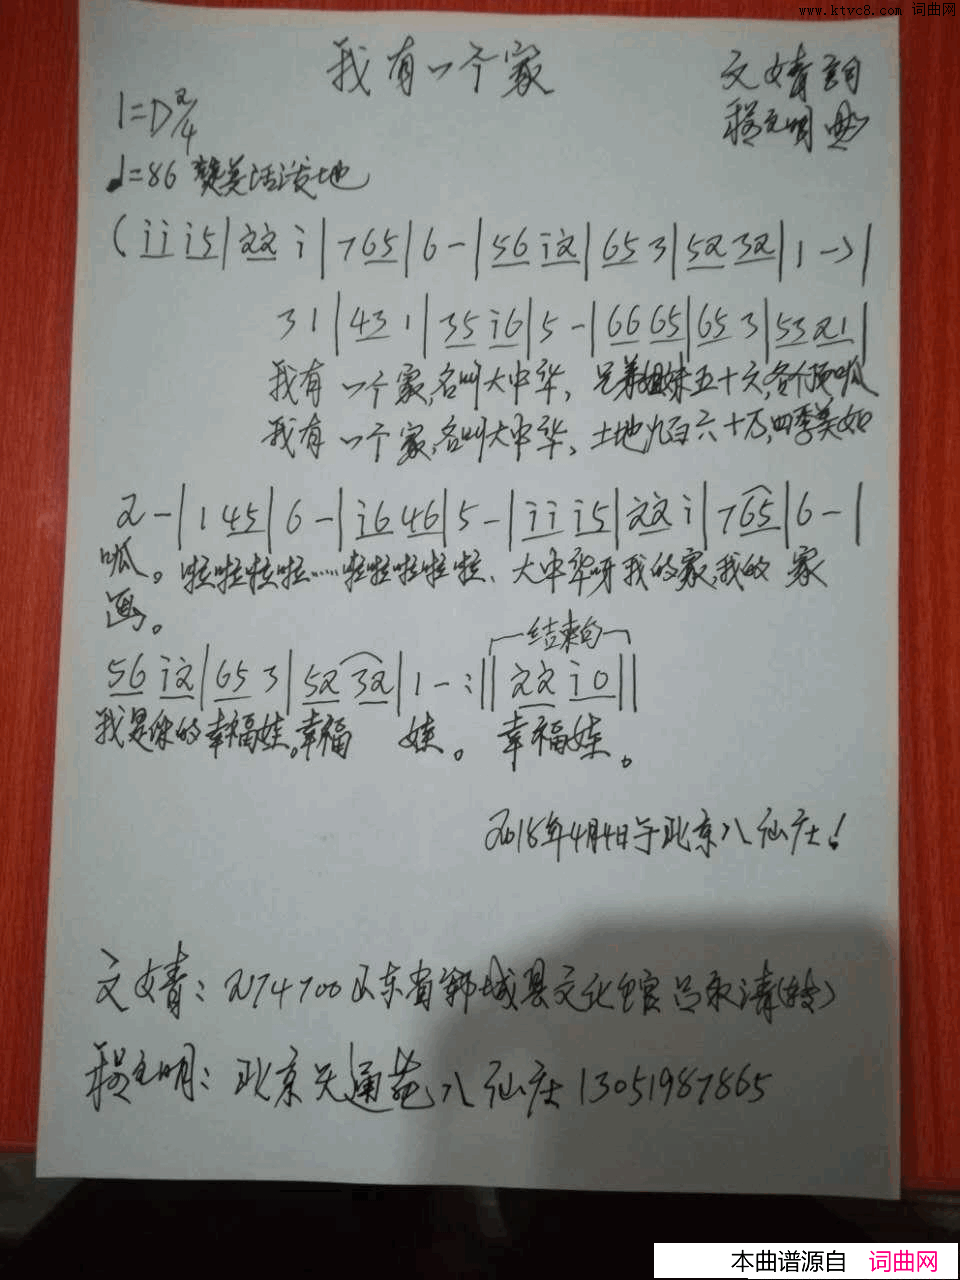 www.ktvc8.com 词曲网
我有一个家
文婧 词
程元明 曲
1=D 2/4
♩=86 赞美活泼地
(i̇ i̇ i̇ 5 | 2̇ 2̇ i̇ | 7 6 5 | 6 - | 5 6 i̇ 2̇ | 6 5 3 | 5 2 3 2 | 1 -) |
3 1 | 4 3 1 | 3 5 i̇ 6 | 5 - | 6 6 6 5 | 6 5 3 | 5 3 2 1 |
我有 一个家,名叫大中华, 兄弟姐妹五十六,各个顶呱
我有 一个家,名叫大中华, 土地九百六十万,四季美如
2 - | 1 4 5 | 6 - | i̇ 6 4 6 | 5 - | i̇ i̇ i̇ 5 | 2̇ 2̇ i̇ | 7 6 5 | 6 - |
呱。啦啦啦啦……啦啦啦啦啦、大中华呀我的家,我的 家
画。
结束句
5 6 i̇ 2̇ | 6 5 3 | 5 2 3 2 | 1 - :|| 2̇ 2̇ i̇ 0 ||
我是你的幸福娃,幸福 娃。 幸福娃。
2018年4月4日于北京八仙庄!
文婧:274700山东省郓城县文化馆吕永清(转)
程元明:北京天通苑八仙庄13051987865
本曲谱源自 词曲网